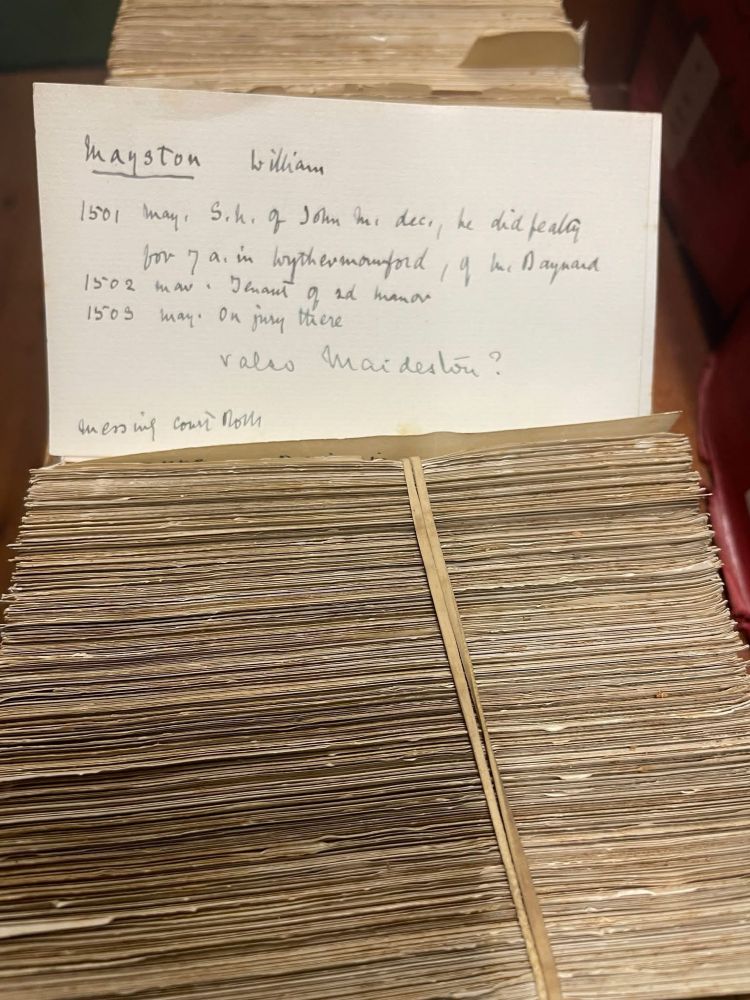 Mayston William
1501 May. S.h. of John M. dec., he did fealty
for 7 a. in Wythermounford, of M. Baynard
1502 Mar. Tenant of sd manor
1503 May. On jury there
v also Maideston?
Messing Court Rolls